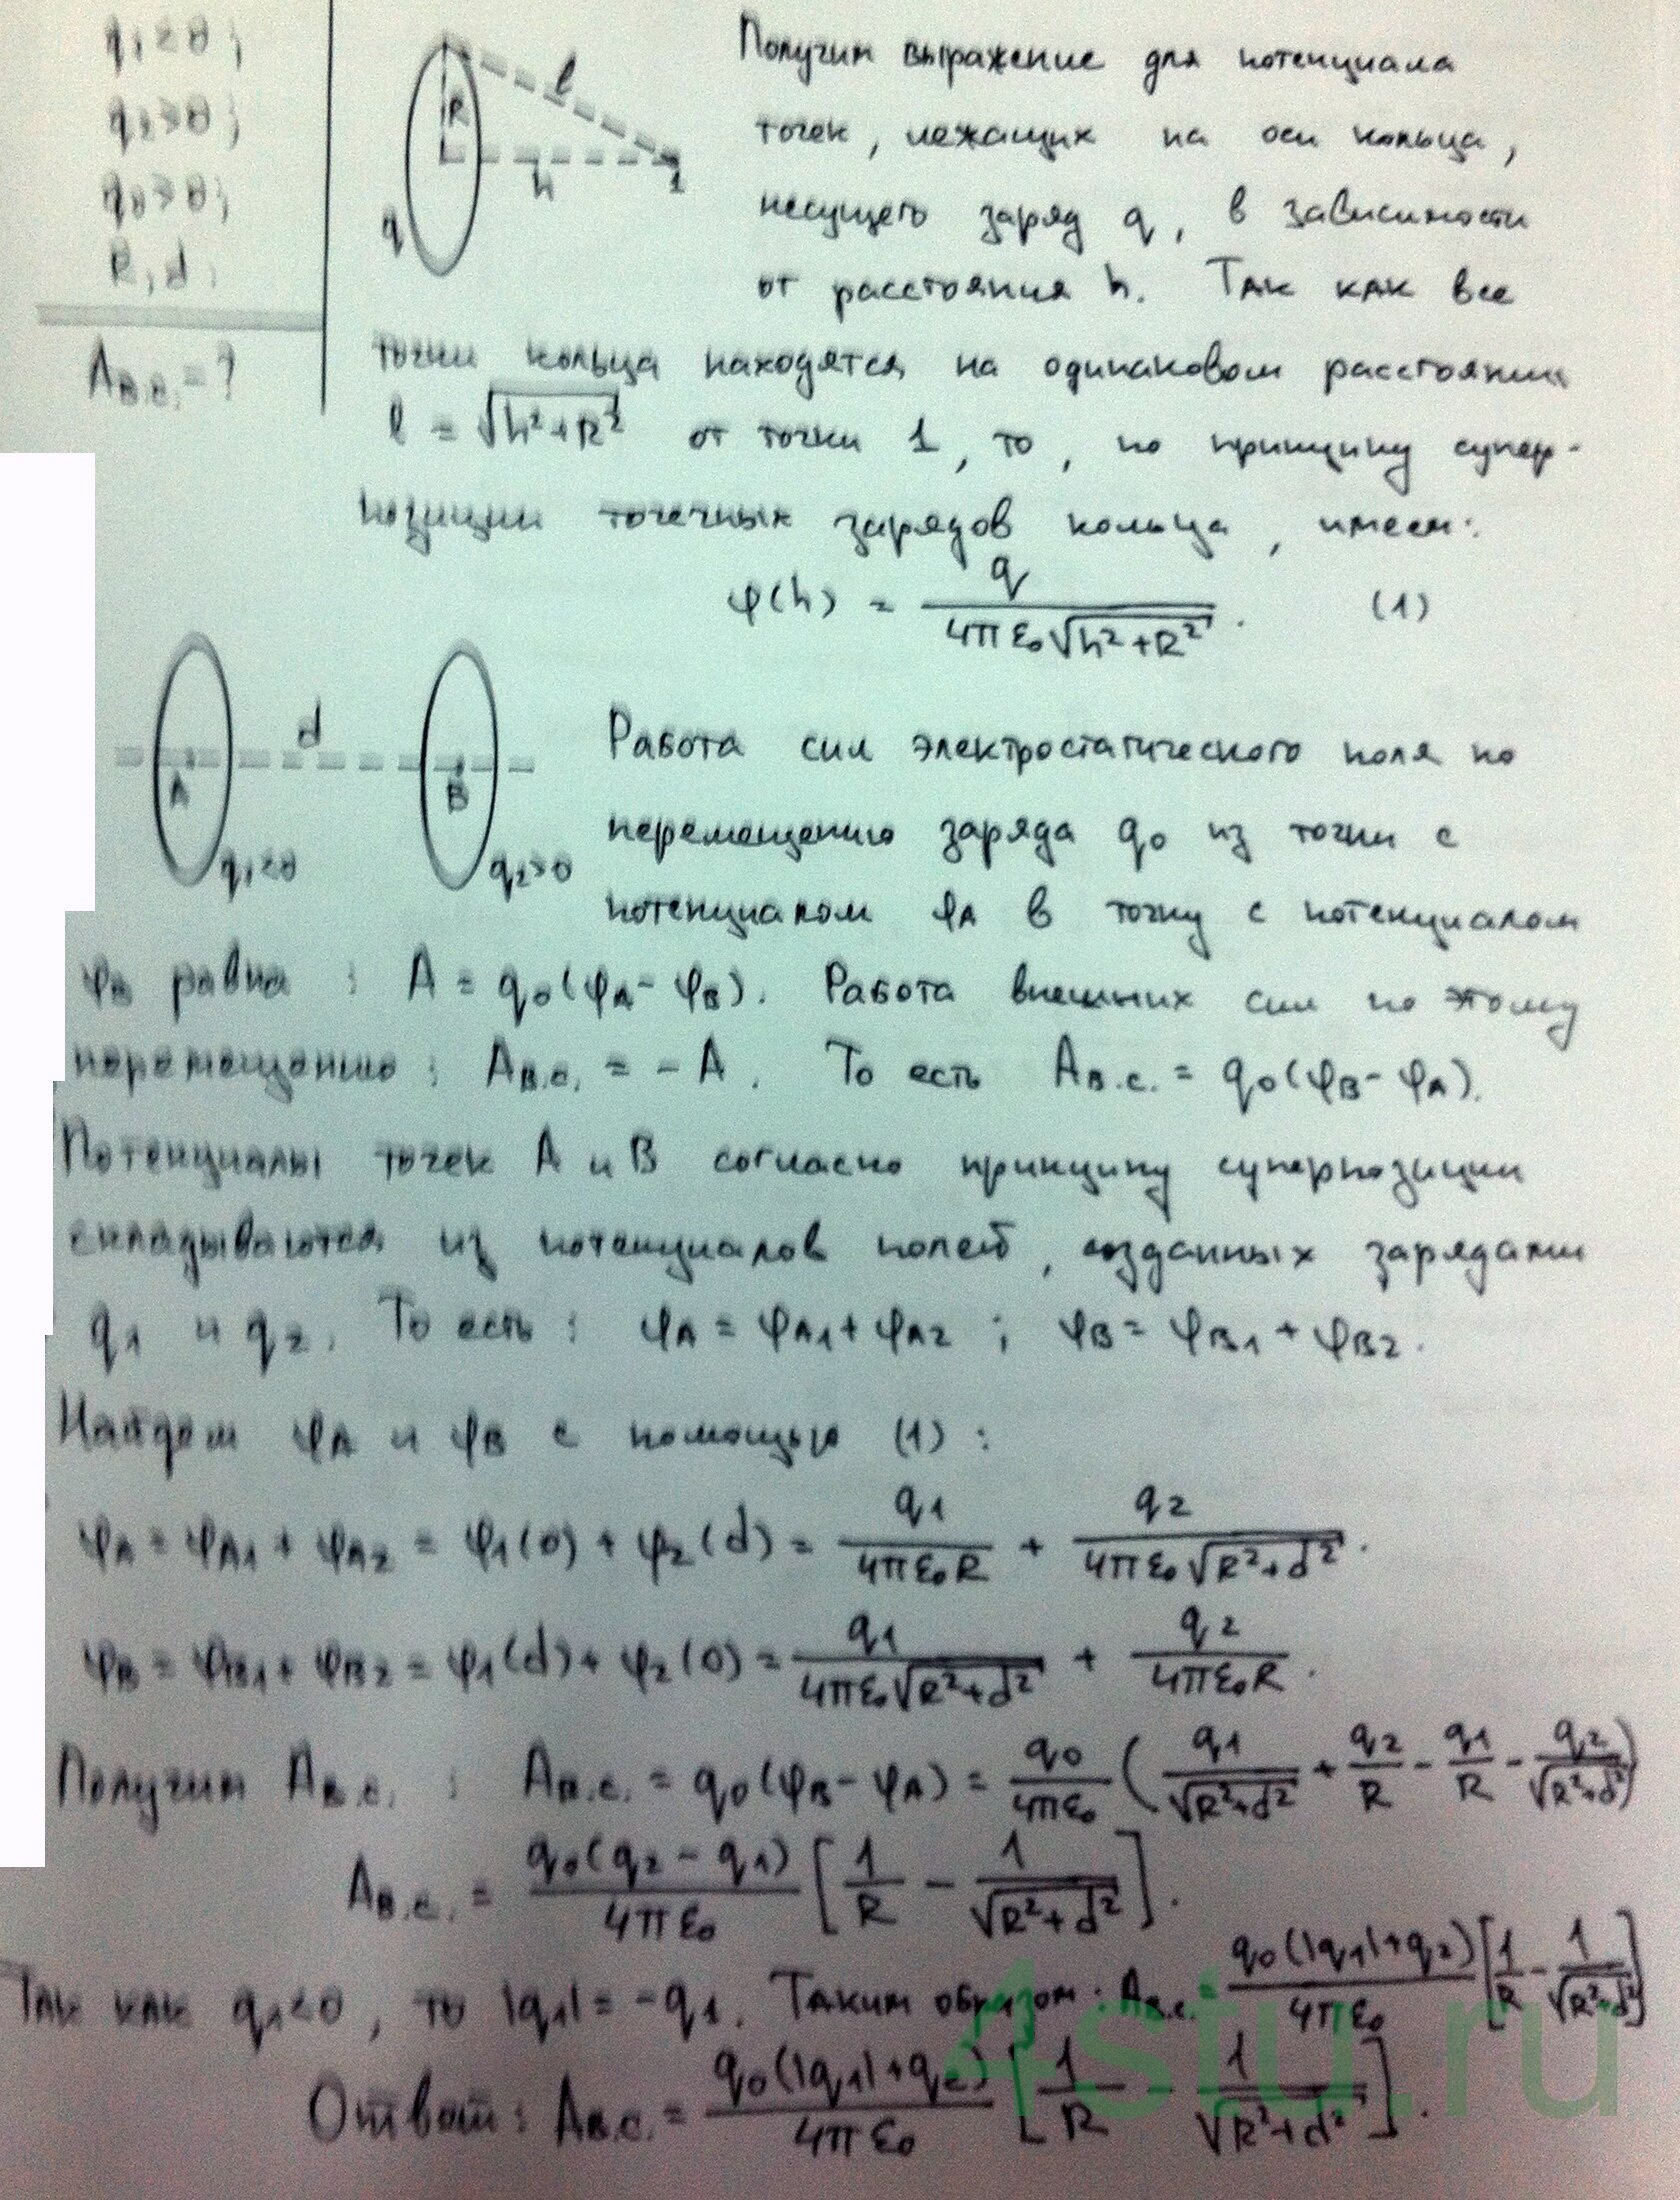 q₁<0;
q₂>0;
q₀>0;
R, d.
Aв.с.=?
R
l
h
1
q
Получим выражение для потенциала
точек, лежащих на оси кольца,
несущего заряд q, в зависимости
от расстояния h. Так как все
точки кольца находятся на одинаковом расстоянии
l = √(h²+R²) от точки 1, то, по принципу супер-
позиции точечных зарядов кольца, имеем:
φ(h) = q / (4πε₀√(h²+R²)). (1)
A
d
B
q₁<0
q₂>0
Работа сил электростатического поля по
перемещению заряда q₀ из точки с
потенциалом φA в точку с потенциалом
φB равна: A = q₀(φA - φB). Работа внешних сил по этому
перемещению: Aв.с. = - A. То есть Aв.с. = q₀(φB - φA).
Потенциалы точек A и B согласно принципу суперпозиции
складываются из потенциалов полей, созданных зарядами
q₁ и q₂. То есть: φA = φA1 + φA2; φB = φB1 + φB2.
Найдем φA и φB с помощью (1):
φA = φA1 + φA2 = φ₁(0) + φ₂(d) = q₁/(4πε₀R) + q₂/(4πε₀√(R²+d²)).
φB = φB1 + φB2 = φ₁(d) + φ₂(0) = q₁/(4πε₀√(R²+d²)) + q₂/(4πε₀R).
Получим Aв.с.: Aв.с. = q₀(φB - φA) = q₀/(4πε₀) (q₁/√(R²+d²) + q₂/R - q₁/R - q₂/√(R²+d²))
Aв.с. = q₀(q₂ - q₁)/(4πε₀) [1/R - 1/√(R²+d²)].
Так как q₁<0, то |q₁| = -q₁. Таким образом: Aв.с. = q₀(|q₁|+q₂)/(4πε₀) [1/R - 1/√(R²+d²)]
Ответ: Aв.с. = q₀(|q₁|+q₂)/(4πε₀) [1/R - 1/√(R²+d²)].
4stu.ru